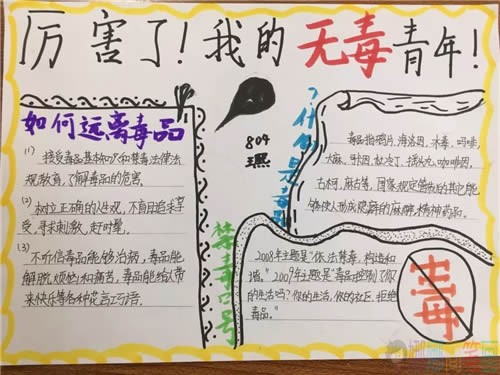 厉害了！我的无毒青年！
如何远离毒品
(1) 接受毒品基本知识和禁毒法律法
规教育，了解毒品的危害。
(2) 树立正确的人生观，不盲目追求享
受，寻求刺激，赶时髦。
(3) 不听信毒品能够治病，毒品能
解脱烦恼和痛苦，毒品能给人带
来快乐等各种花言巧语。
804
什么是毒品？
毒品指鸦片，海洛因，冰毒，吗啡，
大麻，可卡因，
古柯，麻古等，国家规定管制的其它能
够使人形成瘾癖的麻醉精神药品。
禁毒口号
2008年主题是"依法禁毒，构建和
谐。"2009年主题是"毒品控制了你
的生活吗？你的生活，你的社区，拒绝
毒品。"
毒